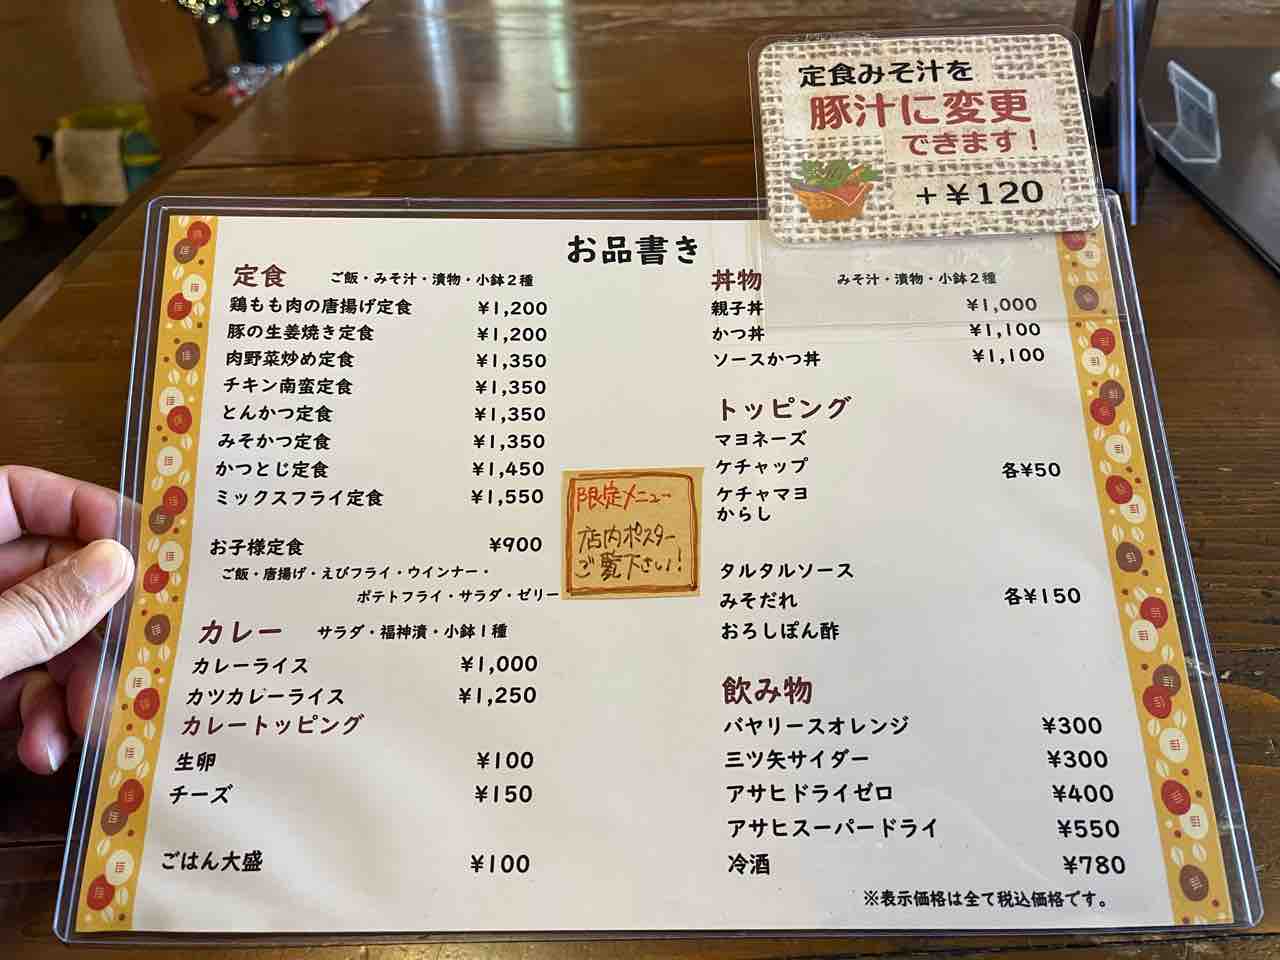 定食みそ汁を
豚汁に変更
できます！
＋¥120
お品書き
定食 ご飯・みそ汁・漬物・小鉢２種
鶏もも肉の唐揚げ定食 ¥1,200
豚の生姜焼き定食 ¥1,200
肉野菜炒め定食 ¥1,350
チキン南蛮定食 ¥1,350
とんかつ定食 ¥1,350
みそかつ定食 ¥1,350
かつとじ定食 ¥1,450
ミックスフライ定食 ¥1,550
お子様定食 ¥900
ご飯・唐揚げ・えびフライ・ウインナー・
ポテトフライ・サラダ・ゼリー
カレー サラダ・福神漬・小鉢１種
カレーライス ¥1,000
カツカレーライス ¥1,250
カレートッピング
生卵 ¥100
チーズ ¥150
ごはん大盛 ¥100
限定メニュー
店内ポスター
ご覧下さい！
丼物 みそ汁・漬物・小鉢２種
親子丼 ¥1,000
かつ丼 ¥1,100
ソースかつ丼 ¥1,100
トッピング
マヨネーズ
ケチャップ 各¥50
ケチャマヨ
からし
タルタルソース
みそだれ 各¥150
おろしぽん酢
飲み物
バヤリースオレンジ ¥300
三ツ矢サイダー ¥300
アサヒドライゼロ ¥400
アサヒスーパードライ ¥550
冷酒 ¥780
※表示価格は全て税込価格です。